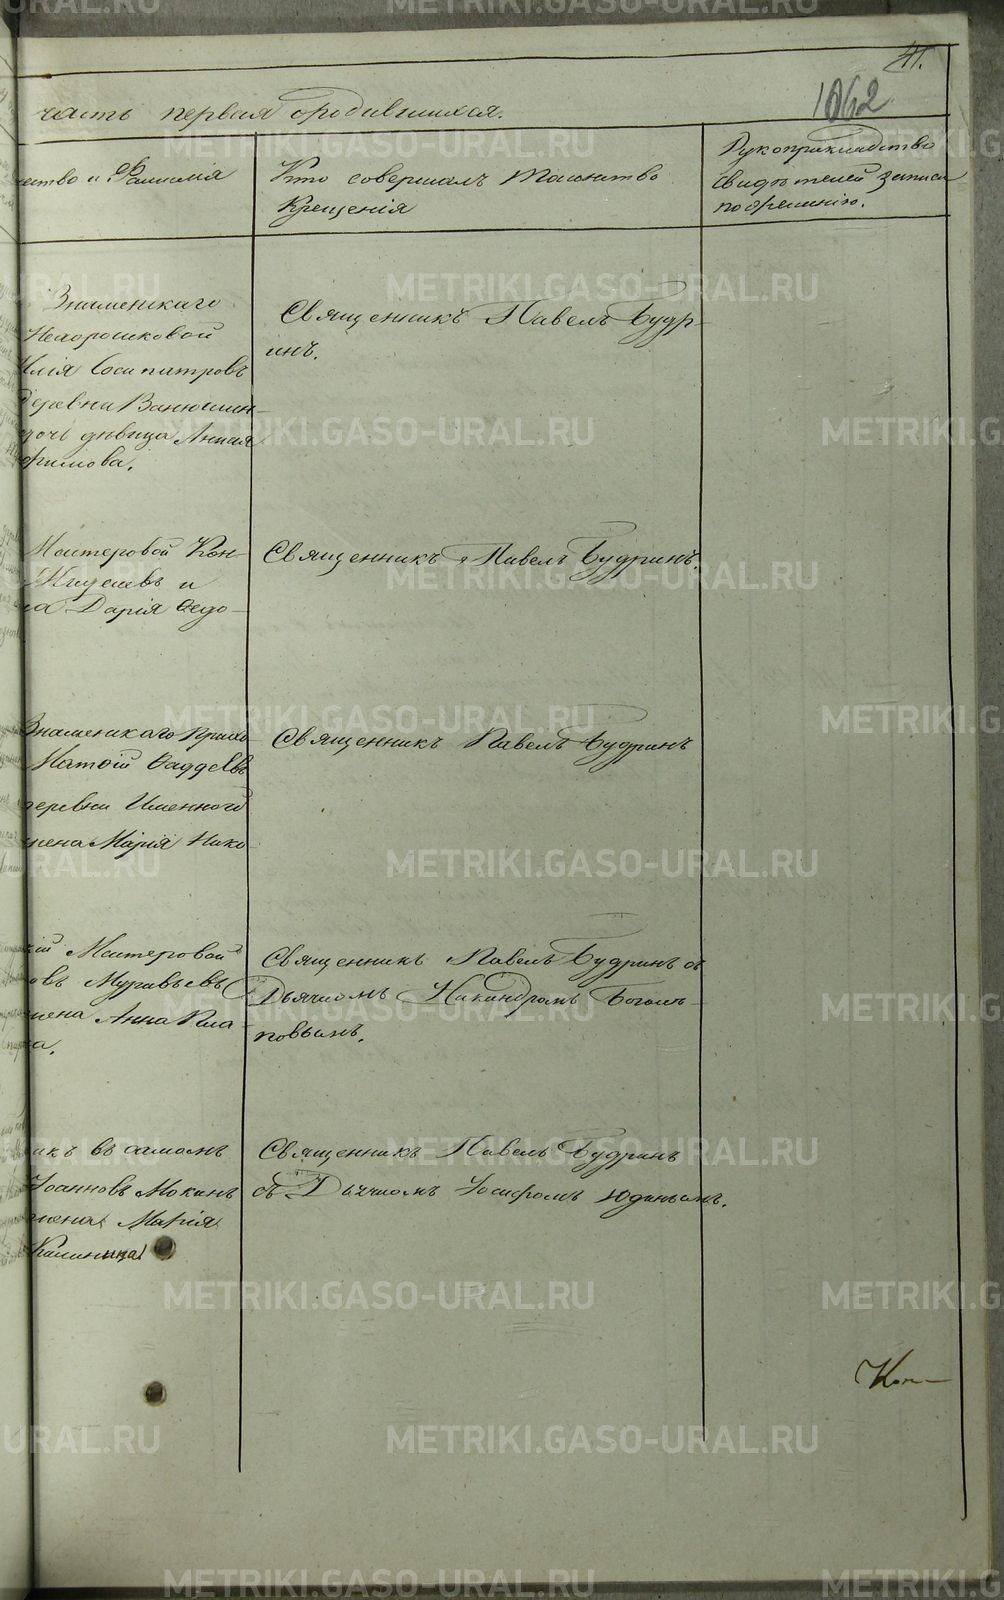 41.
1042
часть первая о родившихся.
ество и Фамилія
Кто совершалъ Таинство
Крещенія
Рукоприкладство
свидѣтелей записи
по желанію.
Знаменскаго
Нехорошковой
Илія Сосипатровъ
деревни Ванюшин-
дочь дѣвица Анна
фимова.
Священникъ Павелъ Будр-
инъ.
Мастеровой Кон-
и
на Дарія Ѳедо-
Священникъ Павелъ Будринъ.
Знаменскаго прихо-
Матѳій Ѳаддеевъ
деревни Именной
жена Марія Нико-
Священникъ Павелъ Будринъ
кій Мастеровой
овъ Муравьевъ
жена Анна Пла-
а.
Священникъ Павелъ Будринъ съ
Дьячкомъ Никандромъ Боголѣ-
повымъ.
икъ въ самомъ
Іоанновъ Мокинъ
жена Марія
Калиница
Священникъ Павелъ Будринъ
съ Дьячкомъ Іосифомъ Юдинымъ.
Кон-
METRIKI.GASO-URAL.RU